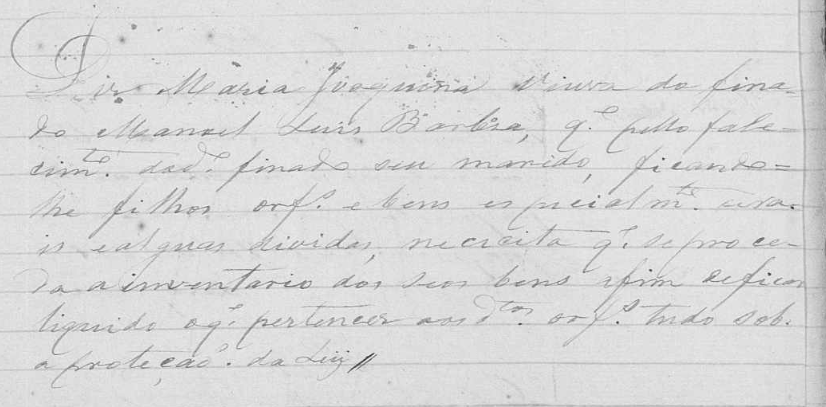 Diz Maria Joaquina Viuva do fina-
do Manoel Luis Barbza, q.e pello fale=
cim.to do d.o finado seu marido, ficando=
lhe filhos orf.s e bens especialm.te
is e algũas dividas, necescita q.e se proce-
da a inventario dos seos bens afim de ficar
liquido o q.e pertencer aos d.tos orf.s tudo sob.
a proteçaõ. da Leij //